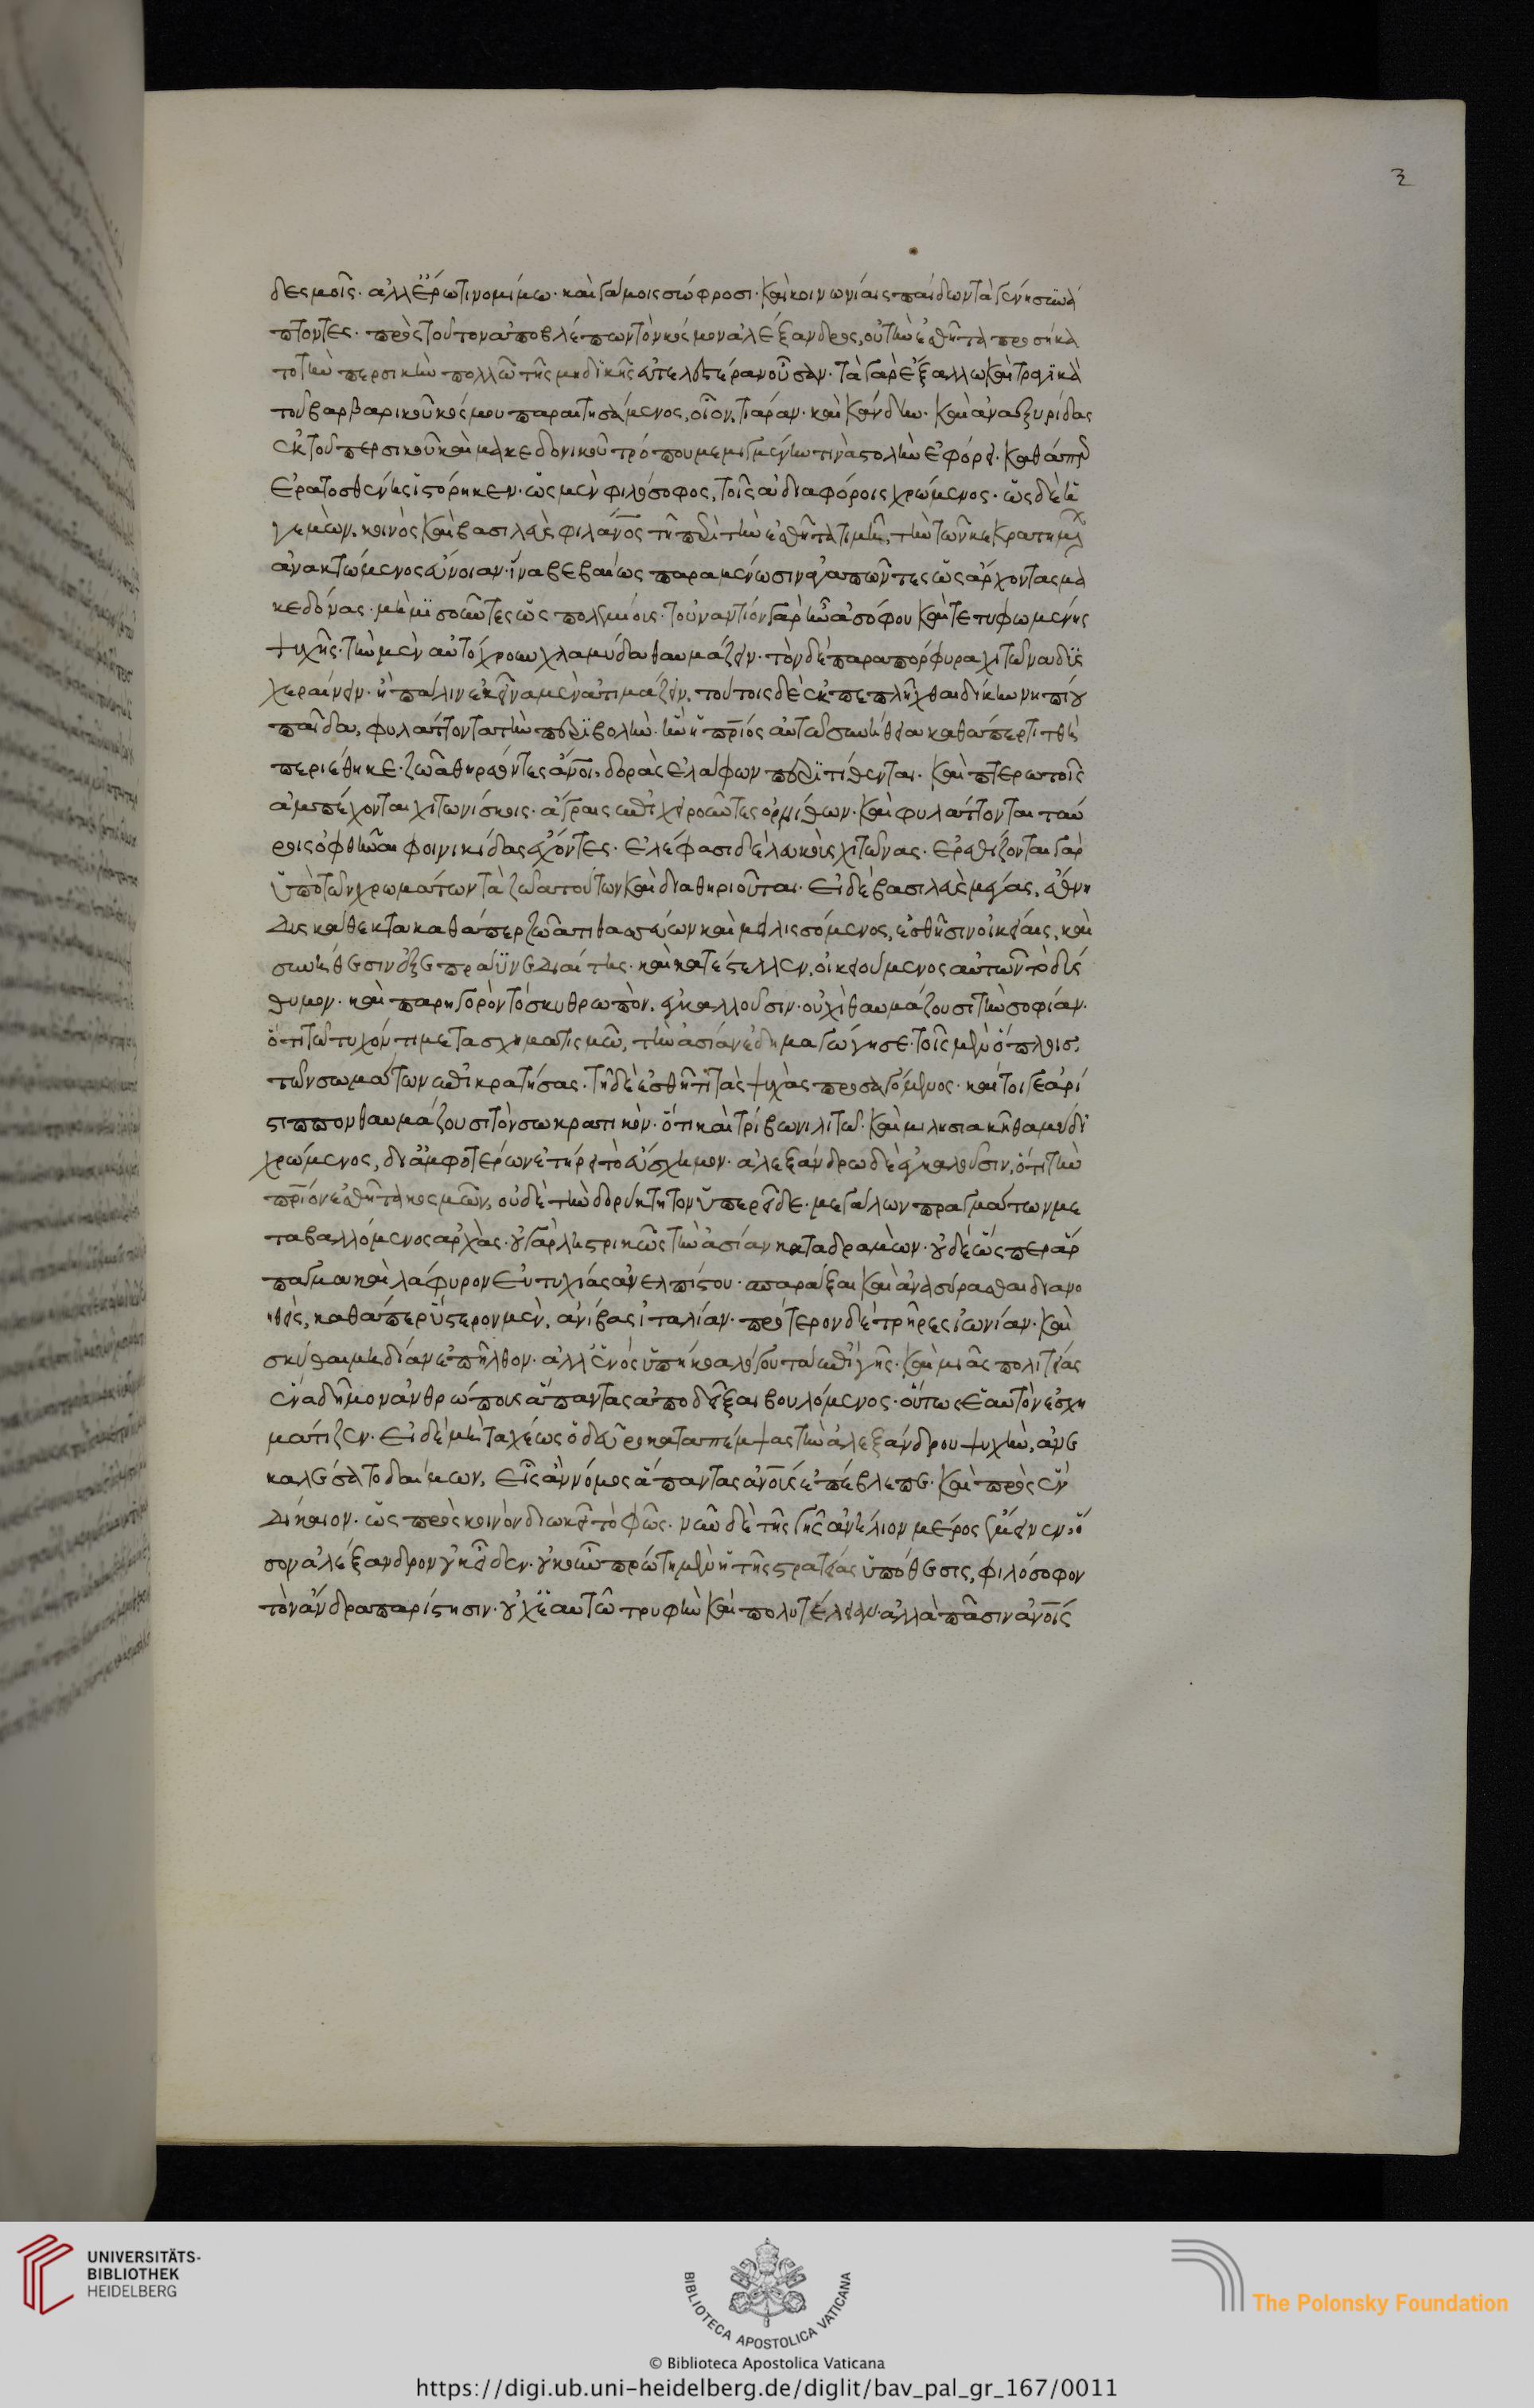 δεσμοῖς· ἀλλ' ἔρωτι νομίμω· καὶ γάμοις σώφροσι· καὶ κοινωνίαις παίδων τὰ γένη συνά
πτοντες· πρὸς τοῦτον ἀποβλέπων τὸν κόσμον ἀλέξανδρος, οὐ τὴν ἐσθῆτα προσήκα
το τὴν περσικὴν πολλῶ τῆς μηδϊκῆς εὐτελεστέραν οὖσαν· τὰ γὰρ ἔξαλλα καὶ τραγικὰ
τοῦ βαρβαρικοῦ κόσμου παραιτησάμενος, οἷον, τιάραν· καὶ κάνδυν· καὶ ἀναξυρίδας
ἐκ τοῦ περσικοῦ καὶ μακεδονικοῦ τρόπου μεμιγμένην τινὰ στολὴν ἐφόρει· καθάπερ
ἐρατοσθένης ἱστόρηκεν· ὡς μὲν φιλόσοφος, τοῖς ἀδιαφόροις χρώμενος· ὡς δὲ ἡ
γεμὼν κοινὸς καὶ βασιλεὺς φιλάνος τῆ περὶ τὴν ἐσθῆτα τιμῆ, τὴν τῶν κεκρατημένων
ἀνακτώμενος εὔνοιαν· ἵνα βεβαίως παραμένωσιν ἀγαπῶντες ὡς ἄρχοντας μα
κεδόνας· μὴ μϊσοῦντες ὡς πολεμίους· τοὐναντίον γὰρ ἦν ἀσόφου καὶ τετυφωμένης
ψυχῆς· τὴν μὲν αὐτόχρουν χλαμύδα θαυμάζειν· τὸν δὲ παραπόρφυρα χιτῶνα δυσ
χεραίνειν· ἢ πάλιν ἐκεῖνα μὲν ἀτιμάζειν, τούτοις δὲ ἐκπεπλῆχθαι δίκην νηπίου
παῖδα, φυλάττοντα τὴν περϊβολὴν· ἣν ἡ πριος αὐτῶ συνήθεια καθάπερ τιτθὴ
περιέθηκε· ζῶα θηρεύοντες ἄνοι, δορὰς ἐλάφων περϊτίθενται· καὶ πτερωτοῖς
ἀμπέχονται χιτωνίσκοις· ἄγραις ἐπιχειροῦντες ὀρνίθων· καὶ φυλάττονται ταύ
ροις ὀφθῆναι φοινικίδας ἔχοντες· ἐλέφασι δὲ λευκοὺς χιτῶνας· ἐρεθίζονται γὰρ
ὑπὸ τῶν χρωμάτων τὰ ζῶα τούτων καὶ διαθηριοῦται· εἰ δὲ βασιλεὺς μέγας, ἔθνη
δυσκάθεκτα καθάπερ ζῶα τιθασεύων καὶ μειλισσόμενος, ἐσθῆσιν οἰκείαις, καὶ
συνήθεσιν ἐξεπράϋνε διαίταις· καὶ κατέστελλεν, οἰκειούμενος αὐτῶν τὸ δύς
θυμον· καὶ παρηγορῶν τὸ σκυθρωπὸν, ἐγκαλοῦσιν· οὐχὶ θαυμάζουσι τὴν σοφίαν·
ὅτι τῶ τυχόντι μετασχηματισμῶ, τὴν ἀσίαν ἐδημαγώγησε· τοῖς μὲν ὅπλοις
τῶν σωμάτων ἐπικρατήσας· τῆ δὲ ἐσθῆτι τὰς ψυχὰς προσαγόμενος· καίτοιγε ἀρί
στιππον θαυμάζουσι τὸν σωκρατικὸν· ὅτι καὶ τρίβωνι λιτῶ· καὶ μιλησία χλαμύδϊ
χρώμενος, δι' ἀμφοτέρων ἐτήρει τὸ εὔσχημον· ἀλεξάνδρω δὲ ἐγκαλοῦσιν, ὅτι τὴν
πριον ἐσθῆτα κοσμῶν, οὐδὲ τὴν δορύκτητον ὑπερεῖδε· μεγάλων πραγμάτων με
ταβαλλόμενος ἀρχὰς· οὐ γὰρ ληστρικῶς τὴν ἀσίαν καταδραμὼν· οὐδὲ ὥσπερ ἅρ
παγμα καὶ λάφυρον εὐτυχίας ἀνελπίστου· σπαράξαι καὶ ἀνασύρασθαι διανο
ηθεὶς, καθάπερ ὕστερον μὲν, ἀνίβας ἰταλίαν· πρότερον δὲ τρῆρες ἰωνίαν· καὶ
σκύθαι μηδίαν ἐπῆλθον· ἀλλ' ἑνὸς ὑπήκοα λόγου τὰ ἐπὶ γῆς· καὶ μιᾶς πολιτείας
ἕνα δῆμον ἀνθρώπους ἅπαντας ἀποδεῖξαι βουλόμενος· οὕτως ἑαυτὸν ἐσχη
μάτιζεν· εἰ δὲ μὴ ταχέως ὁ δεῦρο καταπέμψας τὴν ἀλεξάνδρου ψυχὴν, ἀνε
καλέσατο δαίμων, εἷς ἂν νόμος ἅπαντας ἀνους ἐπέβλεπε· καὶ πρὸς ἓν
δίκαιον· ὡς πρὸς κοινὸν διωκεῖτο φῶς· νῦν δὲ τῆς γῆς ἀνήλιον μέρος ἔμεινεν, ὅ
σον ἀλέξανδρον οὐκ εἶδεν· οὐκοῦν πρώτη μὲν ἡ τῆς στρατείας ὑπόθεσις, φιλόσοφον
τὸν ἄνδρα παρίστησιν· οὐχ ἑαυτῶ τρυφὴν καὶ πολυτέλειαν· ἀλλὰ πᾶσιν ἀνοις
UNIVERSITÄTS-
BIBLIOTHEK
HEIDELBERG
BIBLIOTECA APOSTOLICA VATICANA
The Polonsky Foundation
© Biblioteca Apostolica Vaticana
https://digi.ub.uni-heidelberg.de/diglit/bav_pal_gr_167/0011